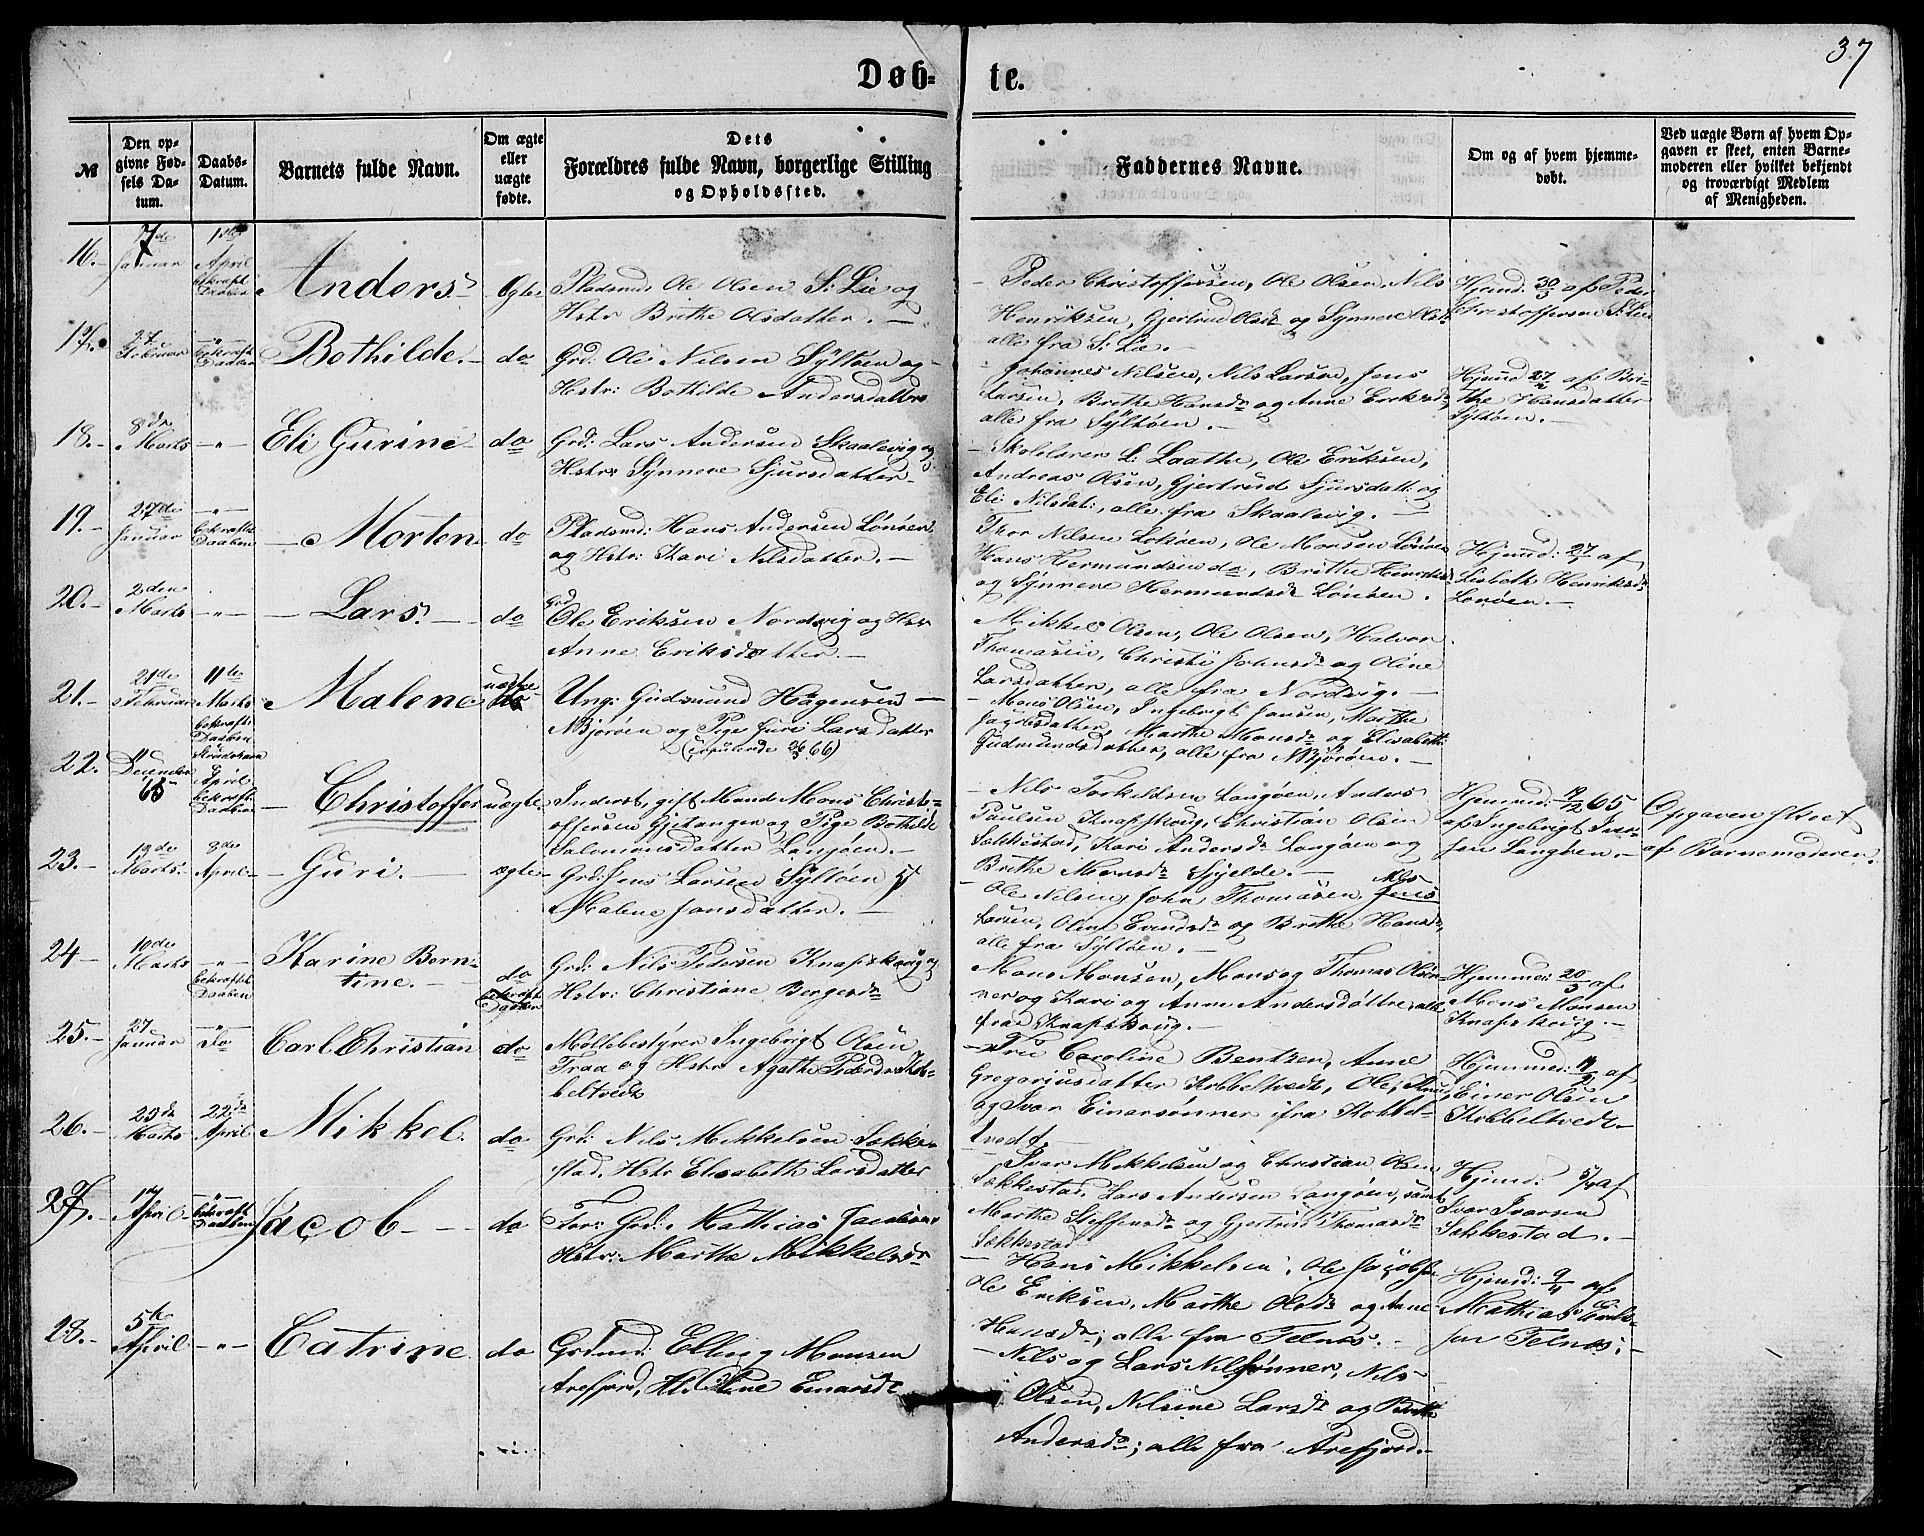 37
Døb-
te.
№
Den op-
givne Fød-
sels Da-
tum.
Daabs-
Datum.
Barnets fulde Navn.
Om ægte
eller
uægte
fødte.
Dets
Forældres fulde Navn, borgerlige Stilling
og Opholdssted.
Faddernes Navne.
Om og af hvem hjemme-
døbt.
Ved uægte Børn af hvem Op-
gaven er skeet, enten Barne-
moderen eller hvilket bekjendt
og troværdigt Medlem
af Menigheden.
16.-
Januar
April
bekræft.
Daaben
Anders
Ægte
Pladsmd. Ole Olsen S. Lie og
Hstr Brithe Olsdatter.
Peder Christoffersen, Ole Olsen, Nils
Henriksen, Gjertrud Olsdr og Synneve Olsdr
alle fra S. Lie.
Hjemd. 30/3 af Peder
Christoffersen S. Lie
17.
27
Februar
bekræft.
Daaben
Bothilde.
do
Grd: Ole Nilsen Syltøen og
Hstr: Bothilde Andersdatter
Johannes Nilsen, Nils Larsen, Jens
Larsen, Brithe Hansdr og Anne Eriksdr
alle fra Syltøen.
Hjemd 27/2 af Bri-
the Hansdatter
Syltøen.
18.-
8de
Marts
Eli Gurine
do
Grd: Lars Andersen Skaalevig og
Hstr Synneve Sjursdatter
Skolelærer L. Laathe, Ole Eriksen,
Andreas Olsen, Gjertrud Sjursdatt. og
Eli Nilsdat., alle fra Skaalevig.
19.-
27de
Januar
bekræft
Daaben
Morten
do
Pladsmd: Hans Andersen Lønøen
og Hstr: Kari Nilsdatter.
Thor Nilsen Lokøen, Ole Monsen Lønøen
Hans Hermundsen do, Brithe Henriksdr
og Synneve Hermundsdr Lønøen.
Hjemd: 27/1 af
Lisbeth Henriksdr
Lønøen.
20.-
2den
Marts
Lars.
do
Grd
Ole Eriksen Nordvig og Hstr
Anne Eriksdatter.
Mikkel Olsen, Ole Olsen, Halvor
Thomasen, Christi Johnsdr og Oline
Larsdatter, alle fra Nordvig.
21.-
21de
Februar
11te
Marts
bekræft.
Daaben
Malene
uægte
Ung: Gudmund Haagensen
N Bjorøen og Pige Guri Larsdatter
Mons Olsen, Ingebrigt Jansen, Marthe
Jacobsdatter, Marthe Monsdr og Elisabeth
Gudmundsdatter, alle fra N Bjorøen.
22.
Decembr
65
April
bekræft.
Daaben
Christoffer
uægte.
Inderst, gift Mand Mons Christ-
offersen Gjetanger og Pige Bothilde
Salomonsdatter Langøen.
Nils Torkeldsen Langøen, Anders
Paulsen Knapskoug, Christian Olsen
Sækkestad, Kari Andersdr Langøen og
Brithe Monsdr Spjelde.
Hjemmed: 65
af Ingebrigt Iver-
sen Langøen.
Opgaven skeet
af Barnemoderen.
23.-
13de
Marts.
8de
April
Guri.
ægte
Grd: Jens Larsen Syltøen og
Malene Jansdatter.
Ole Nilsen, John Thomasen Nils
Larsen, Oline Evendsdr og Brithe Hansdr,
alle fra Syltøen.
24
10de
Marts
bekræft
Daaben
Karine Bern-
tine.
do
bekræft.
Daaben
Grd: Nils Pedersen Knapskoug og
Hstr: Christiane Bergesdr
Mons Monsen, Mons og Thomas Olsøn-
ner og Kari og Anne Andersdøttre, alle
fra Knapskoug.
Hjemmed: 20/3 af
Mons Monsen
Knapskoug.
25.-
27
Januar
Do
Carl Christian
do
Møllebestyrer Ingebrigt Olsen
Fraa og Hstr Agathe Pedersdr Kob-
beltvedt
Fru Caroline Bentzen, Anne
Gregoriusdatter Kobbeltvedt, Ole, Knud
og Ivar Einarsønner ifra Kobbel-
tvedt.
Hjemmed: 11/2 af
Einer Olsen
Kobbeltvedt.
26.-
29de
Marts
22de
April
Mikkel.
do
Grd: Nils Mikkelsen Sække-
stad, Hstr Elisabeth Larsdatter
Ivar Mikkelsen og Christian Olsen
Sækkestad, Lars Andersen Langøen, samt
Marthe Steffensdr og Gjertrud Thomasdr
Sækkestad
Hjemd: 5/4 af
Ivar Ivarsen
Sækkestad.
27.-
April
bekræft
Daaben
Jacob
do
Far: Grd: Mathias Jacobsen
Hstr: Marthe Mikkelsdr
Hans Mikkelsen, Ole Jacobsen
Ole Eriksen, Marthe Olsdr og Anne
Hansdr; alle fra Telnæs.
Hjemd: 9/4 af
Mathias
sen Telnæs.
28.-
5te
April
Catrine
do
Grdmd: Elling Monsen
Arefjord, H: Stine Einarsdr
Nils og Lars Nilssønner, Nils
Olsen, Nilsine Larsdr og Brithe
Andersdr; alle fra Arefjord.